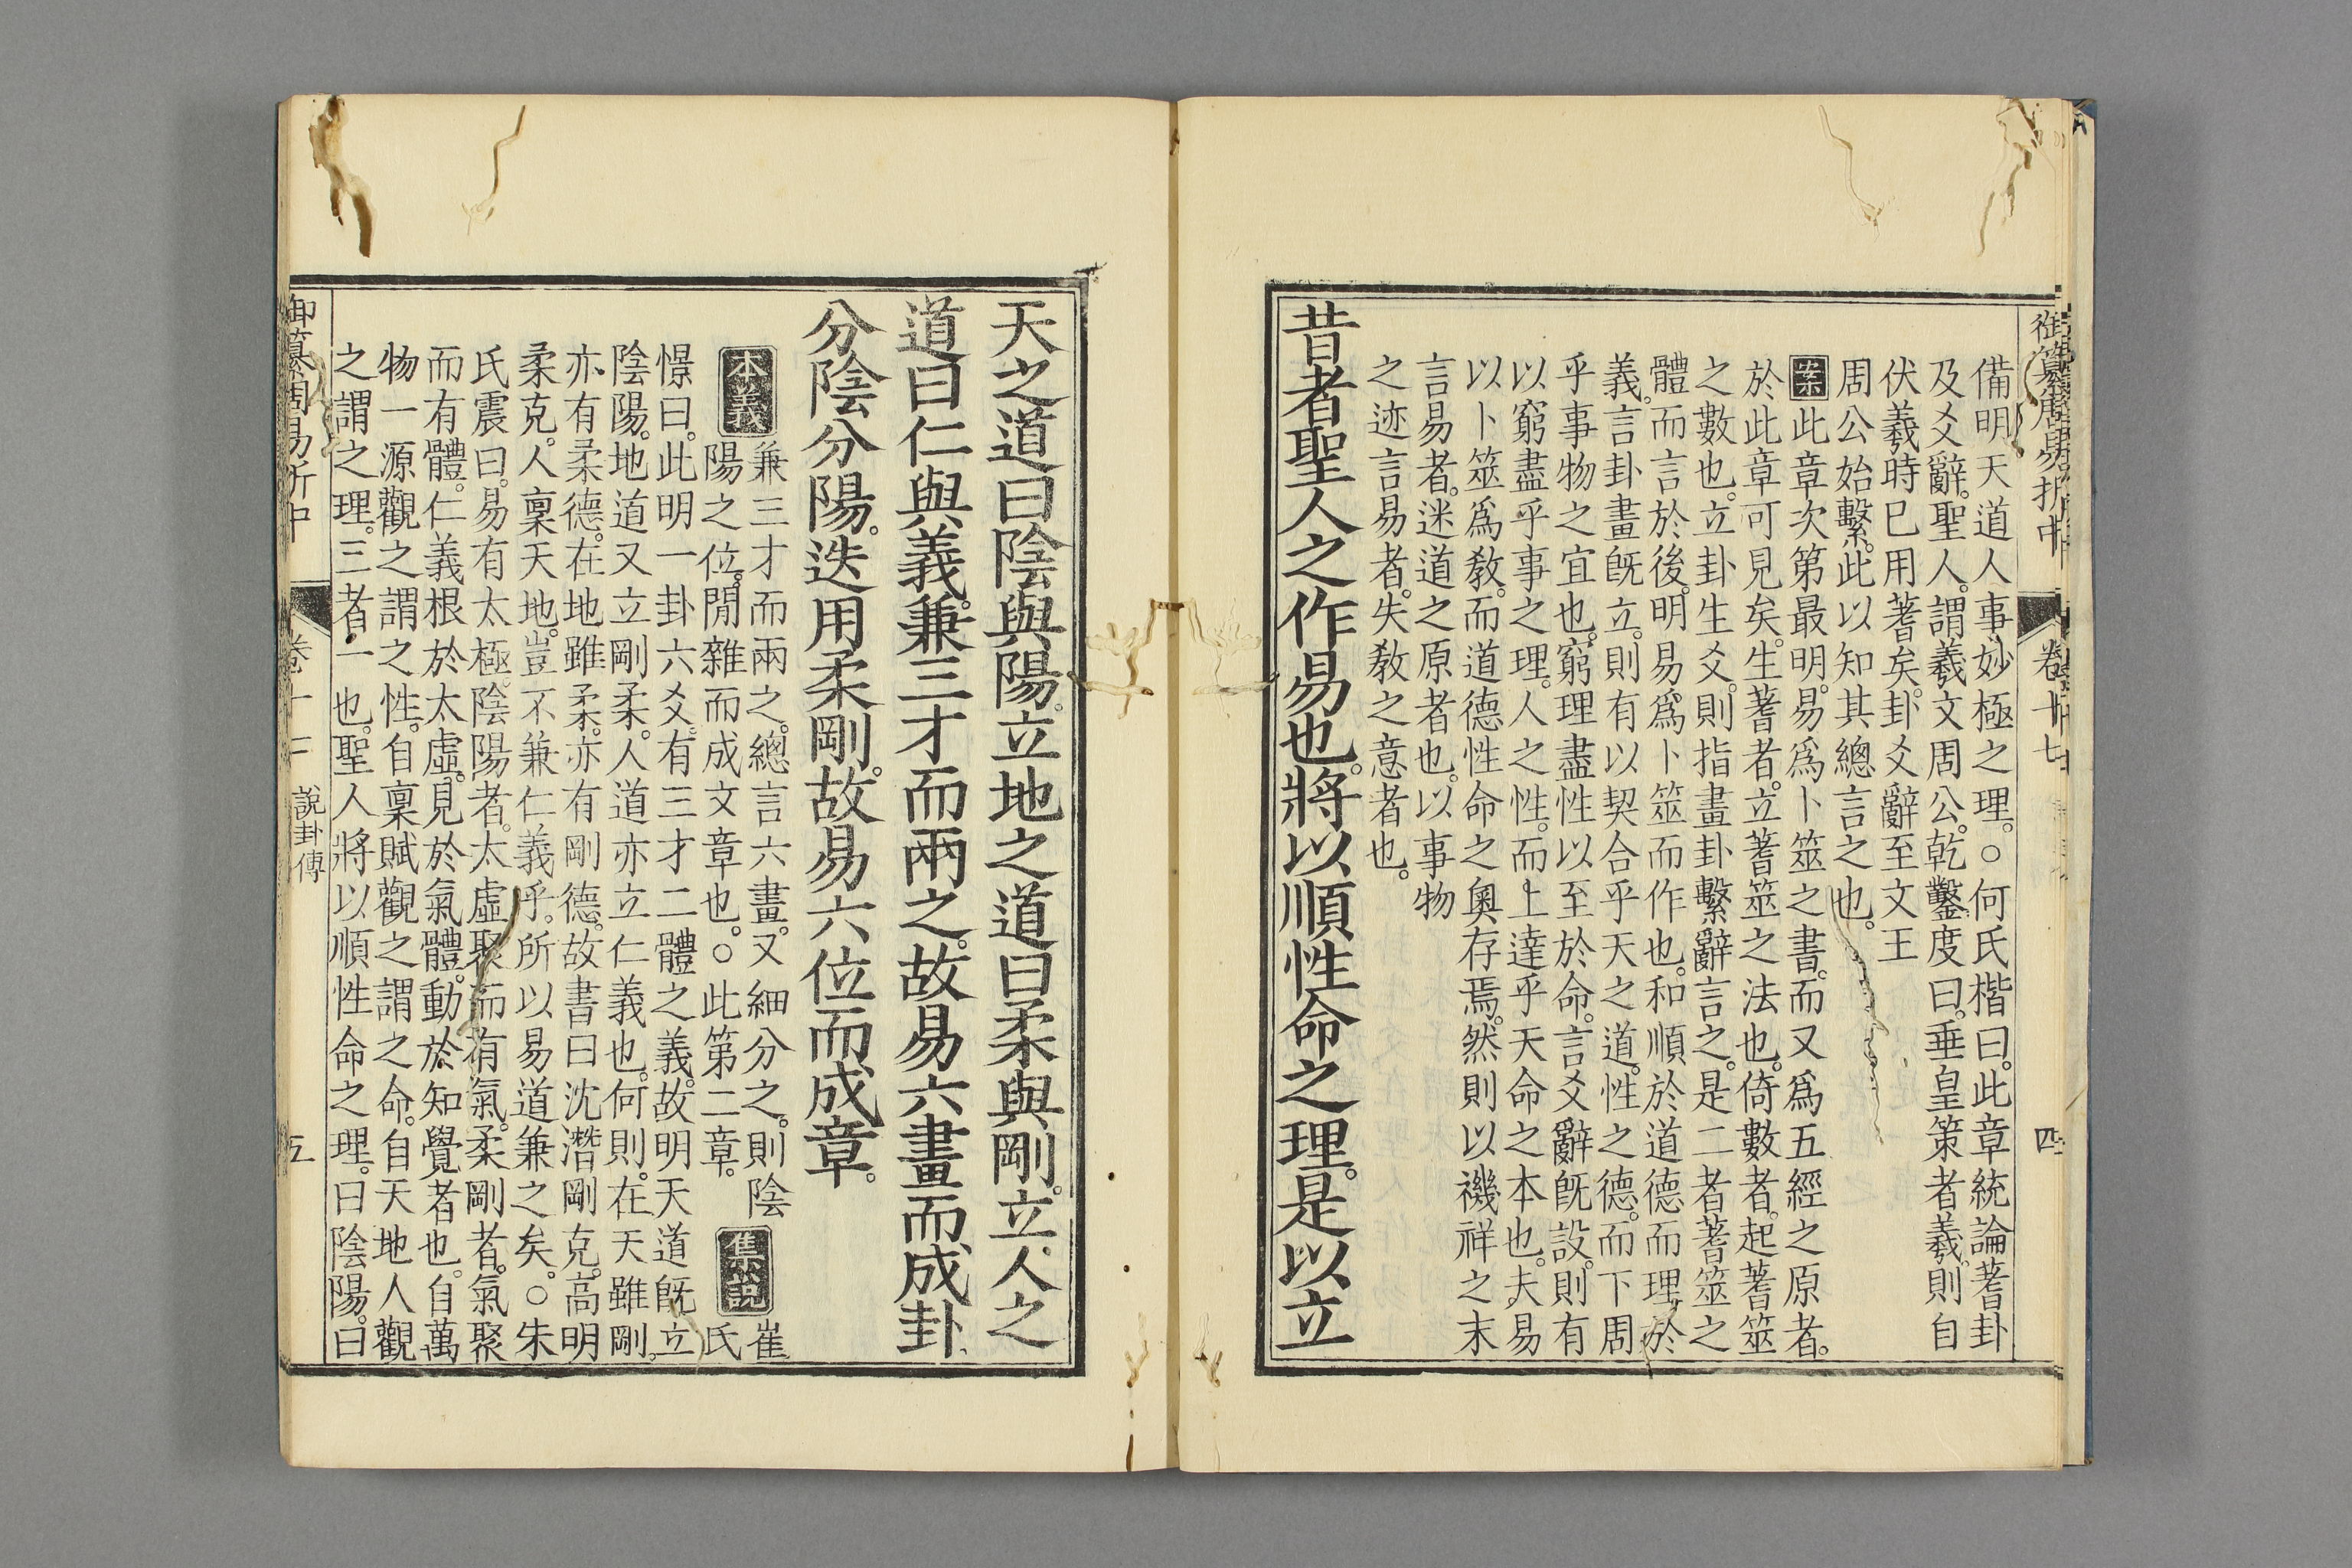 御纂周易折中 卷十七 四
備明天道人事妙極之理。○何氏楷曰。此章統論蓍卦
及爻辭。聖人。謂羲文周公。乾鑿度曰。垂皇策者羲。則自
伏羲時已用蓍矣。卦爻辭至文王
周公始繫。此以知其總言之也。
案此章次第最明。易爲卜筮之書。而又爲五經之原者。
於此章可見矣。生蓍者。立蓍筮之法也。倚數者。起蓍筮
之數也。立卦生爻。則指畫卦繫辭言之。是二者蓍筮之
體而言於後。明易爲卜筮而作也。和順於道德而理於
義。言卦畫旣立。則有以契合乎天之道。性之德。而下周
乎事物之宜也。窮理盡性以至於命。言爻辭旣設。則有
以窮盡乎事之理。人之性。而上達乎天命之本也。夫易
以卜筮爲教。而道德性命之奧存焉。然則以禨祥之末
言易者。迷道之原者也。以事物
之迹言易者。失教之意者也。
昔者聖人之作易也。將以順性命之理。是以立
天之道曰陰與陽。立地之道曰柔與剛。立人之
道曰仁與義。兼三才而兩之。故易六畫而成卦。
分陰分陽。迭用柔剛。故易六位而成章。
本義 兼三才而兩之。總言六畫。又細分之。則陰
陽之位。閒雜而成文章也。○此第二章。 集說 崔氏
憬曰。此明一卦六爻。有三才二體之義。故明天道旣立
陰陽。地道又立剛柔。人道亦立仁義也。何則。在天雖剛。
亦有柔德。在地雖柔。亦有剛德。故書曰沈潛剛克。高明
柔克。人稟天地。豈不兼仁義乎。所以易道兼之矣。○朱
氏震曰。易有太極。陰陽者。太虛聚而有氣。柔剛者。氣聚
而有體。仁義根於太虛。見於氣體。動於知覺者也。自萬
物一源觀之謂之性。自稟賦觀之謂之命。自天地人觀
之謂之理。三者一也。聖人將以順性命之理。曰陰陽。曰
御纂周易折中 卷十 說卦傳 五